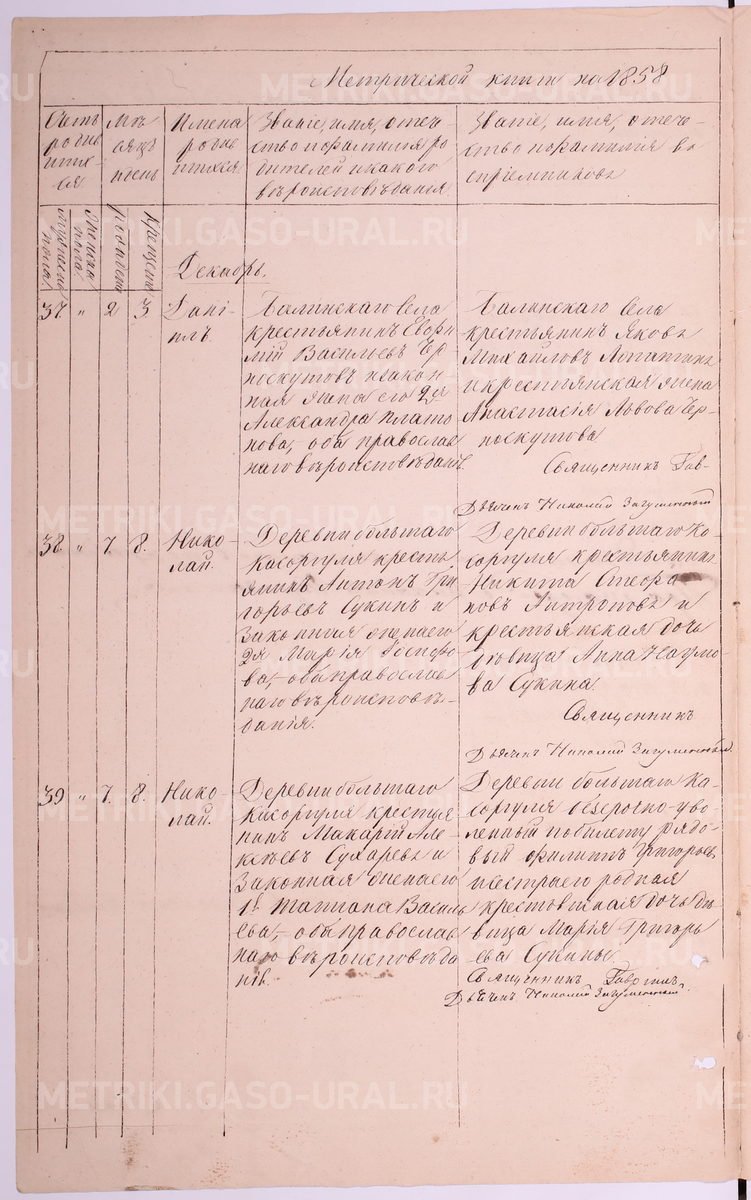 Метрической книги на 1858
Счетъ
родив
шихъ
ся.
Мѣ
сяцъ
и день
Имена
роди
вшихся.
Званіе, имя, отече-
ство и фамилія ро
дителей и какого
вѣроисповѣданія
Званіе, имя, отече-
ство и фамилія во
спріемниковъ
Мужеска
пола
Женска
пола
рожденія
Крещенія
Декабрь.
37 " 2 3 Дані-
илъ.
крестьянинъ
мій Васильевъ Чер
носкутовъ и закон
ная жена его 2я
Александра Плато
нова, оба православ
наго вѣроисповѣданія.
Села
крестьянинъ Яковъ
Михайловъ
и крестьянская жена
Анастасія Львова Чер-
носкутова
Священникъ Гав-
Дьячекъ Николай
38. " 7. 8. Нико-
лай.
Деревни большаго
Касаргуля кресть
янинъ Антонъ Гри
горьевъ Сукинъ и
Законная жена его
2я Марія
ва, оба православ
наго вѣроисповѣ-
данія.
Деревни большаго Ка
саргуля крестьянинъ
Никита Стефа
новъ Антроповъ и
крестьянская дочь
дѣвица Анна Наумо
ва Сукина.
Священникъ
Дьячекъ Николай
39 " 7. 8. Нико-
лай.
Деревни большаго
Касаргуля крестья
нинъ Макарій Але-
ксѣевъ Сухаревъ и
Законная жена его
1я Татіана Василь
ева, оба православ
наго вѣроисповѣда
нія.
Деревни большаго Ка-
саргуля безсрочно-уво
леный по билету рядо-
вый Филипъ Григорьевъ
и сестра его родная
крестьянская дочь дѣ
вица Марія Григорь
ева Сукины.
Священникъ Гавріилъ
Дьячекъ Николай
METRIKI.GASO-URAL.RU